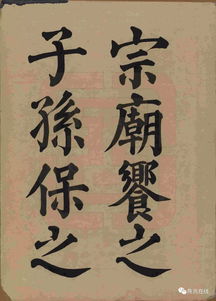 宗廟饗之
子孫保之